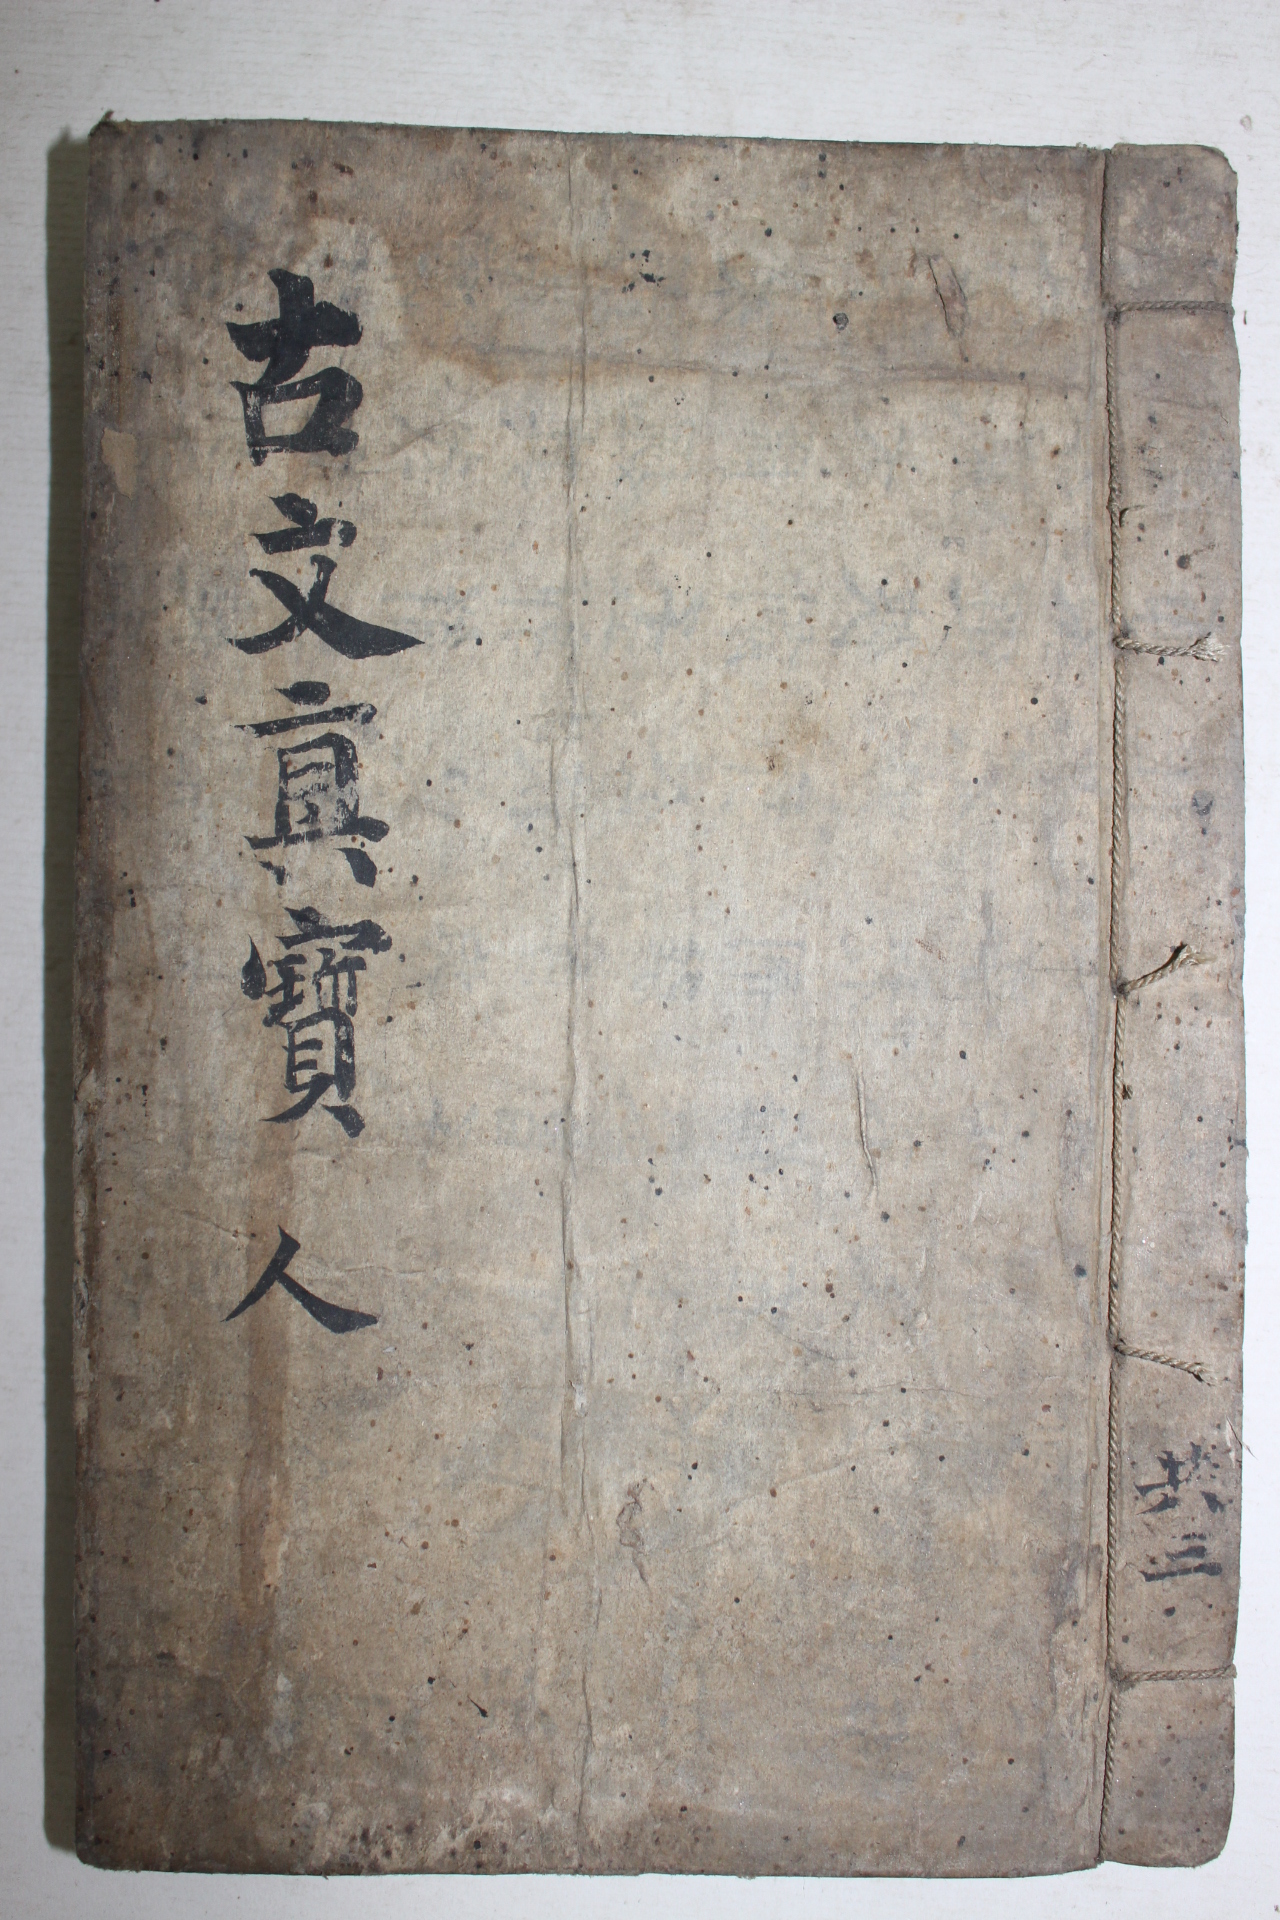 古文眞寶 人
共三